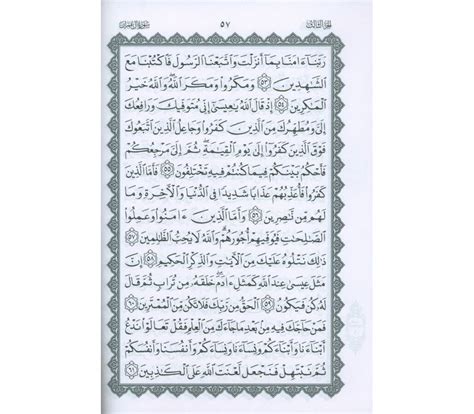 الجزء الثالث ٥٧ سورة آل عمران
رَبَّنَآ ءَامَنَّا بِمَآ أَنزَلْتَ وَٱتَّبَعْنَا ٱلرَّسُولَ فَٱكْتُبْنَا مَعَ
ٱلشَّٰهِدِينَ ٥٣ وَمَكَرُوا۟ وَمَكَرَ ٱللَّهُ وَٱللَّهُ خَيْرُ
ٱلْمَٰكِرِينَ ٥٤ إِذْ قَالَ ٱللَّهُ يَٰعِيسَىٰٓ إِنِّى مُتَوَفِّيكَ وَرَافِعُكَ
إِلَىَّ وَمُطَهِّرُكَ مِنَ ٱلَّذِينَ كَفَرُوا۟ وَجَاعِلُ ٱلَّذِينَ ٱتَّبَعُوكَ
فَوْقَ ٱلَّذِينَ كَفَرُوٓا۟ إِلَىٰ يَوْمِ ٱلْقِيَٰمَةِ ثُمَّ إِلَىَّ مَرْجِعُكُمْ
فَأَحْكُمُ بَيْنَكُمْ فِيمَا كُنتُمْ فِيهِ تَخْتَلِفُونَ ٥٥ فَأَمَّا ٱلَّذِينَ
كَفَرُوا۟ فَأُعَذِّبُهُمْ عَذَابًا شَدِيدًا فِى ٱلدُّنْيَا وَٱلْءَاخِرَةِ وَمَا
لَهُم مِّن نَّٰصِرِينَ ٥٦ وَأَمَّا ٱلَّذِينَ ءَامَنُوا۟ وَعَمِلُوا۟
ٱلصَّٰلِحَٰتِ فَيُوَفِّيهِمْ أُجُورَهُمْ وَٱللَّهُ لَا يُحِبُّ ٱلظَّٰلِمِينَ ٥٧
ذَٰلِكَ نَتْلُوهُ عَلَيْكَ مِنَ ٱلْءَايَٰتِ وَٱلذِّكْرِ ٱلْحَكِيمِ ٥٨ إِنَّ
مَثَلَ عِيسَىٰ عِندَ ٱللَّهِ كَمَثَلِ ءَادَمَ خَلَقَهُۥ مِن تُرَابٍ ثُمَّ قَالَ
لَهُۥ كُن فَيَكُونُ ٥٩ ٱلْحَقُّ مِن رَّبِّكَ فَلَا تَكُن مِّنَ ٱلْمُمْتَرِينَ ٦٠
فَمَنْ حَآجَّكَ فِيهِ مِنۢ بَعْدِ مَا جَآءَكَ مِنَ ٱلْعِلْمِ فَقُلْ تَعَالَوْا۟ نَدْعُ
أَبْنَآءَنَا وَأَبْنَآءَكُمْ وَنِسَآءَنَا وَنِسَآءَكُمْ وَأَنفُسَنَا وَأَنفُسَكُمْ
ثُمَّ نَبْتَهِلْ فَنَجْعَل لَّعْنَتَ ٱللَّهِ عَلَى ٱلْكَٰذِبِينَ ٦١